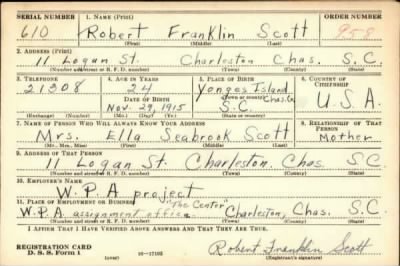 SERIAL NUMBER 1. NAME (Print) ORDER NUMBER
610 Robert Franklin Scott 958
(First) (Middle) (Last)
2. ADDRESS (Print)
11 Logan St. Charleston Chas. S.C.
(Number and street or R. F. D. number) (Town) (County) (State)
3. TELEPHONE 4. AGE IN YEARS 5. PLACE OF BIRTH 6. COUNTRY OF CITIZENSHIP
21308 24 Yonges Island Chas. Co.
DATE OF BIRTH (Town or county)
Nov. 29, 1915 S.C. U.S.A.
(Exchange) (Number) (Mo.) (Day) (Yr.) (State or country)
7. NAME OF PERSON WHO WILL ALWAYS KNOW YOUR ADDRESS 8. RELATIONSHIP OF THAT PERSON
Mrs. Ella Seabrook Scott Mother
(Mr., Mrs., Miss) (First) (Middle) (Last)
9. ADDRESS OF THAT PERSON
11 Logan St. Charleston, Chas SC
(Number and street or R. F. D. number) (Town) (County) (State)
10. EMPLOYER'S NAME
W.P.A project
11. PLACE OF EMPLOYMENT OR BUSINESS "The Center"
W.P.A. assignment office Charleston, Chas. S.C.
(Number and street or R. F. D. number) (Town) (County) (State)
I AFFIRM THAT I HAVE VERIFIED ABOVE ANSWERS AND THAT THEY ARE TRUE.
REGISTRATION CARD
D. S. S. Form 1 (over) 16-17105 Robert Franklin Scott
(Registrant's signature)